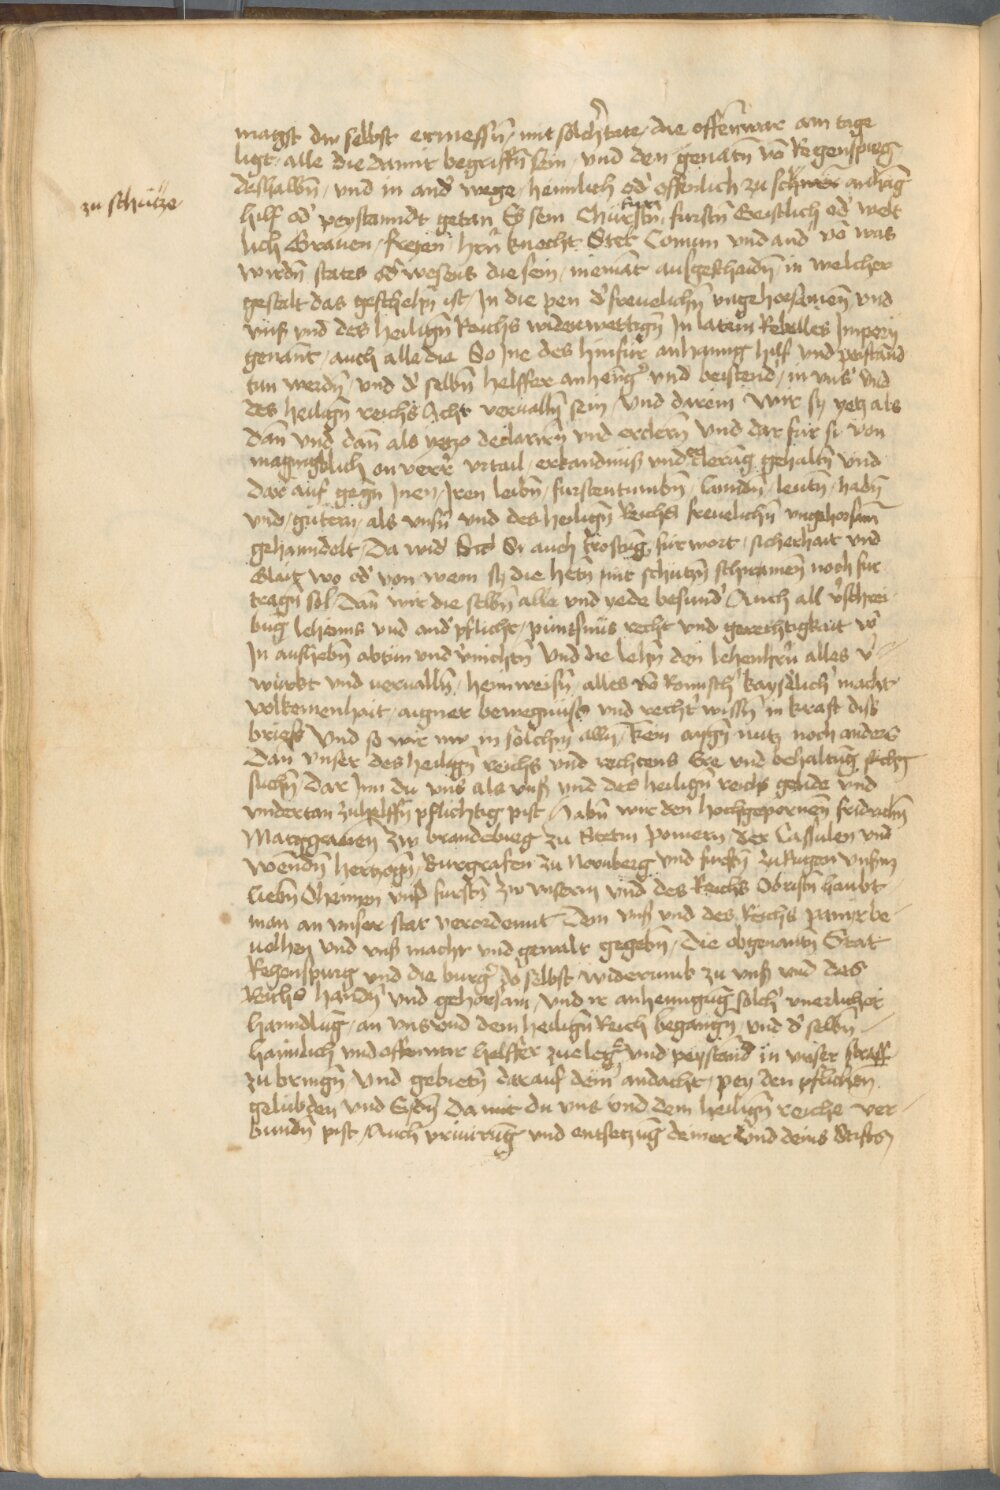 magst dw selbst ermessn̄ / mit solcher tate / die offenwar am tage
ligt / alle die damit begriffn̄ sein / vnd den genātn̄ vō Regenspurg
deshalbn̄ / vnd in and' wege / heimlich od' offenlich zu anhāg
zu schütze
hilf od' peystanndt getan Es sein Churfstn̄ / furstn̄ Geistlich od' welt
lich Grauen / freyen / hern̄ knecht Stet Comun vnd and' vō was
wirdn̄ states od' wesens die sein / niemāt ausgeschaidn̄ in welcher
gestalt das geschehn̄ ist / In die pen d' freuelichn̄ vngehorsamen̄ vnd
vnß vnd des heilign̄ Reichs widerwertign̄ In latein Rebelles Imperij
genānt / auch alle die So Ine des hinfur anhanng hilf vnd peistand
tun werdn̄ / vnd d' selbn̄ helffer anheng' vnd beistend' / in vns' vnd
des heilign̄ reichs Acht veruallen sein / Vnd darein Wir sy yetz als
dan̄ vnd dan̄ als yetzo declarirn̄ vnd erclern̄ Vnd dar fur si von
menigklich on verr' vrtail / erkandnuß vnd clerūg gehaltn̄ vnd
dar auf gegn̄ Inen / Iren leibn̄ / furstentumbn̄ / lanndn̄ / leutn̄ / habn̄
vnd / gutern / als vnsn̄ vnd des heilign̄ Reichs freuelichn̄ vngehorsam̄
gehanndelt Da wid' Sie auch trostūg furwort / sicherhait vnd
Glait wo od' von wem sy die hetn̄ nit schutzn̄ schirmen̄ noch fur
tragn̄ sol Dan̄ wir die selbn̄ alle vnd yede besund' Auch all v'schrei
būg lehenns vnd and' pflicht / puntsnus recht vnd gerechtigkait vō
In aufhebn̄ abtun vnd v'nichtn̄ Vnd die lehn̄ den lehenhern̄ alles v'
wurkt vnd veruallen / heimweisn̄ / alles vō Romisch' kayserlich' macht
volkomenhait / aigner bewegnuss vnd recht' wissn̄ in kraft diss
briefs Vnd so wir nw in solchm̄ allm̄ / kein aygn̄ nutz noch anders
Dan vnser des heilign̄ reichs vnd rechtens Ere vnd behaltūg
suchn̄ Dar Inn du vns als vnß vnd des heilign̄ reichs gelide vnd
vndertan zuhelffn̄ pflichtig pist / Habn̄ wir den hochgepornen̄ fridrichn̄
Marggrauen zw brandeburg zu Stetin pomern der Cassuben vnd
Wendn̄ hertzogn̄ / Burggrafen zu Nornberg vnd furstn̄ zu Rugen vnserm
liebn̄ Oheimen vnß furstn̄ zw vnserm vnd des Reichs Obristn̄ haubt
man an vnser stat verordennt Dem vnß vnd des Reichs panir be
uolhen vnd vnß macht vnd gewalt gegebn̄ / Die obgenantn̄ Stat
Regenspurg vnd die burg' do selbst widerumb zu vnß vnd des
Reichs handn̄ vnd gehorsam / vnd ir anhenngūg solch' vnerlicher
hanndlūg / an vns vnd dem heilign̄ Reich begangn̄ / vnd d' selbn̄
haimlich vnd offenwar helffer zuleg' vnd peystand in vnser straff
zu bringn̄ Vnd gebietn̄ darauf dein' andacht / pey den pflichten
gelubden vnd Eydn̄ Da mit du vns vnd dem heilign̄ reiche ver
bundn̄ pist / Auch priuirūg vnd entsetzūg deiner vnd deins Stifts